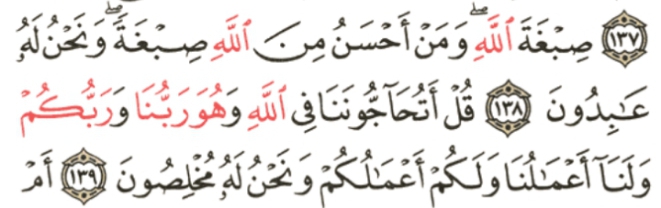 ﴿١٣٧﴾ صِبْغَةَ ٱللَّهِ ۖ وَمَنْ أَحْسَنُ مِنَ ٱللَّهِ صِبْغَةً ۖ وَنَحْنُ لَهُۥ
عَٰبِدُونَ ﴿١٣٨﴾ قُلْ أَتُحَآجُّونَنَا فِى ٱللَّهِ وَهُوَ رَبُّنَا وَرَبُّكُمْ
وَلَنَآ أَعْمَٰلُنَا وَلَكُمْ أَعْمَٰلُكُمْ وَنَحْنُ لَهُۥ مُخْلِصُونَ ﴿١٣٩﴾ أَمْ